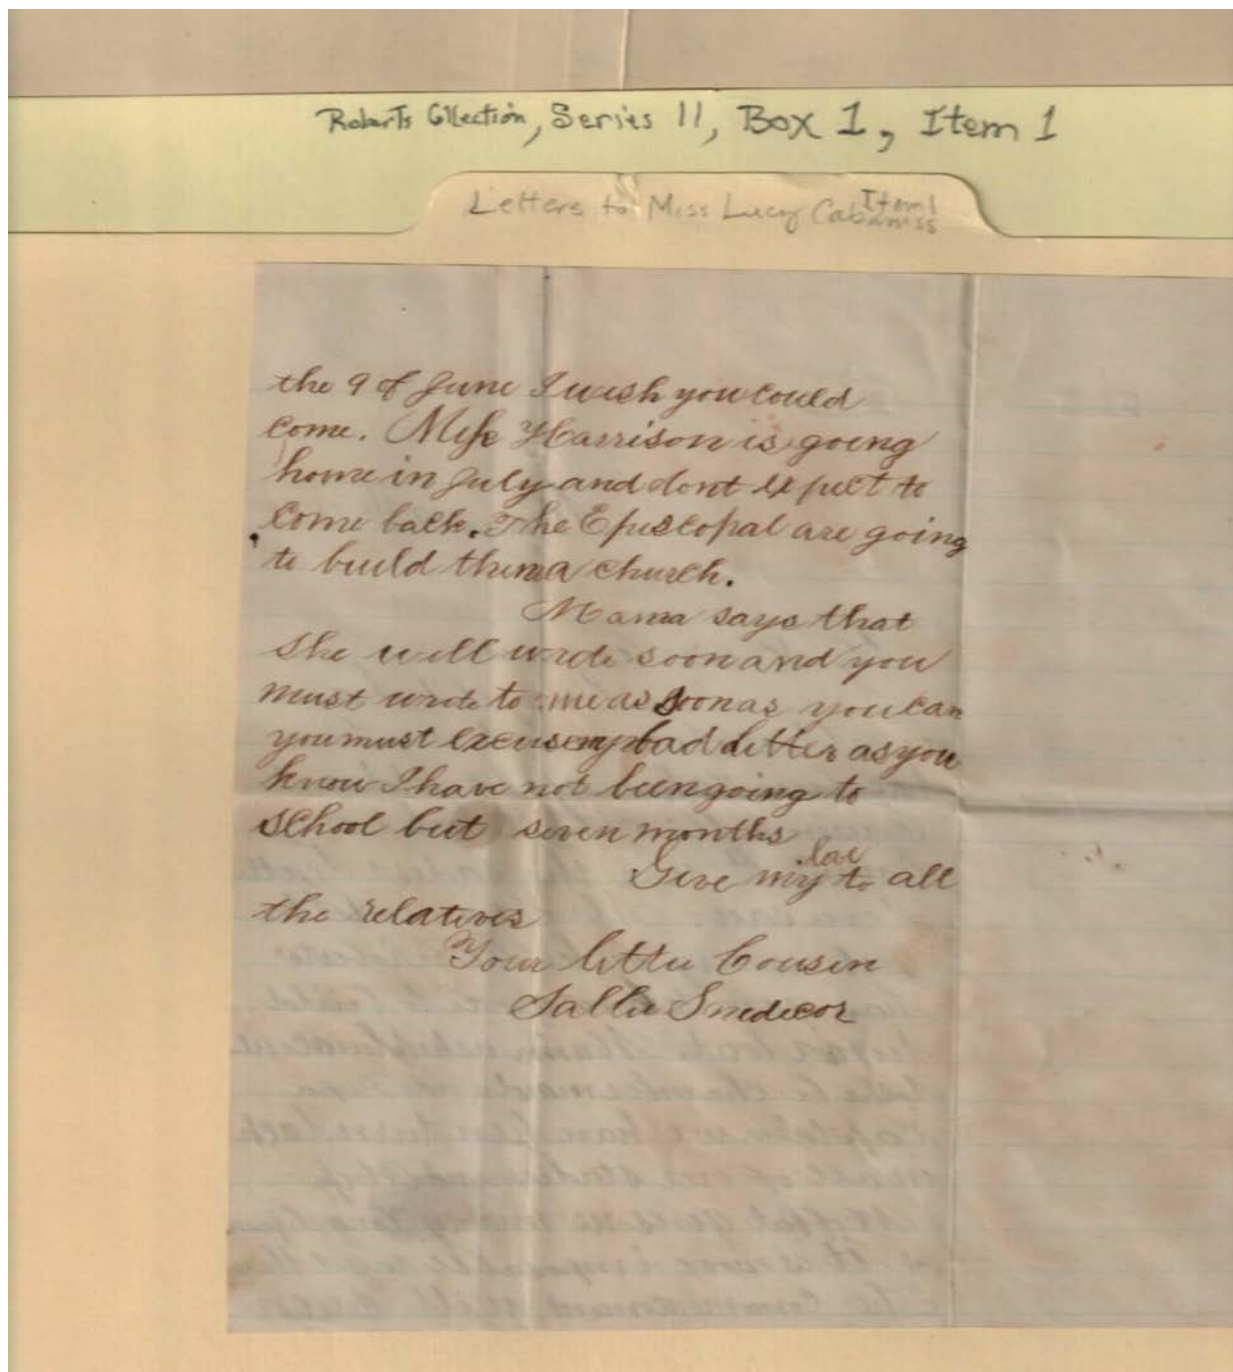 Roberts Collection, Series 11, Box 1, Item 1
Item 1
Letters to Miss Lucy Cabaniss
the 9 of June I wish you could
come. Miss Harrison is going
home in July and dont expect to
come back. The Episcopal are going
to build them a church.
Mama says that
she will write soon and you
must write to me as soon as you can
you must excuse my bad letter as you
know I have not been going to
school but seven months
love
Give my to all
the relatives
Your little Cousin
Sallie Snedecor